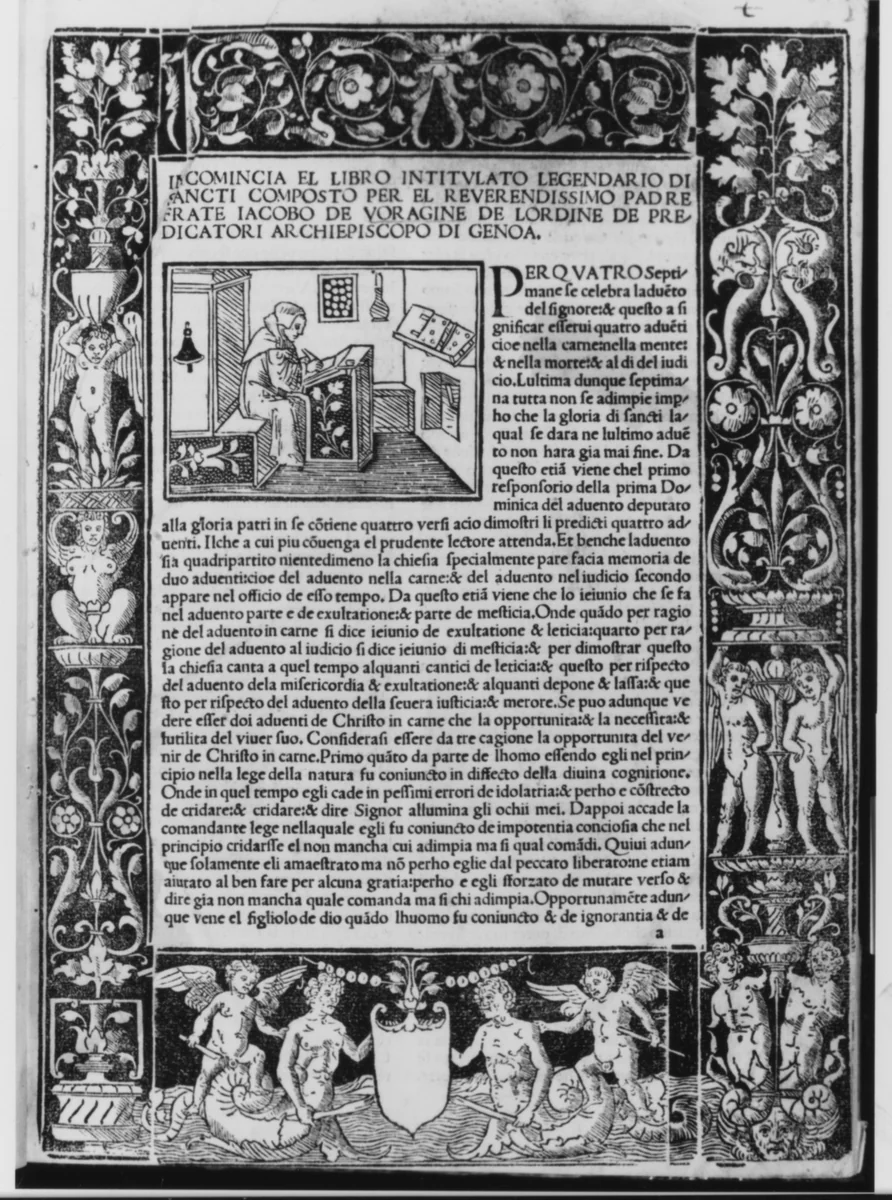 INCOMINCIA EL LIBRO INTITVLATO LEGENDARIO DI
SANCTI COMPOSTO PER EL REVERENDISSIMO PADRE
FRATE IACOBO DE VORAGINE DE LORDINE DE PRE/
DICATORI ARCHIEPISCOPO DI GENOA.
PER QVATRO Septi/
mane se celebra laduēto
del signore:& questo a si
gnificar esserui quatro aduēti
cioe nella carne:nella mente:
& nella morte:& al di del iudi
cio.Lultima dunque septima/
na tutta non se adimpie imp/
ho che la gloria di sancti la/
qual se dara ne lultimo aduē
to non hara gia mai fine. Da
questo etiā viene chel primo
responsorio della prima Do/
minica del aduento deputato
alla gloria patri in se cōtiene quattro versi acio dimostri li predicti quattro ad/
uenti. Ilche a cui piu cōuenga el prudente lectore attenda.Et benche laduento
sia quadripartito nientedimeno la chiesia specialmente pare facia memoria de
duo aduenti:cioe del aduento nella carne:& del aduento nel iudicio secondo
appare nel officio de esso tempo. Da questo etiā viene che lo ieiunio che se fa
nel aduento parte e de exultatione:& parte de mesticia.Onde quādo per ragio
ne del aduento in carne si dice ieiunio de exultatione & leticia:quarto per ra/
gione del aduento al iudicio si dice ieiunio di mesticia:& per dimostrar questo
la chiesia canta a quel tempo alquanti cantici de leticia:& questo per rispecto
del aduento dela misericordia & exultatione:& alquanti depone & lassa:& que
sto per rispecto del aduento della seuera iusticia:& merore.Se puo adunque ve
dere esser doi aduenti de Christo in carne che la opportunita:& la necessita:&
lutilita del viuer suo. Considerasi essere da tre cagione la opportunita del ve/
nir de Christo in carne.Primo quāto da parte de lhomo essendo egli nel prin/
cipio nella lege della natura fu coniuncto in diffecto della diuina cognitione.
Onde in quel tempo egli cade in pessimi errori de idolatria:& perho e cōstrecto
de cridare:& cridare:& dire Signor allumina gli ochii mei. Dappoi accade la
comandante lege nellaquale egli fu coniuncto de impotentia conciosia che nel
principio cridarsse el non mancha cui adimpia ma si qual comādi. Quiui adun/
que solamente eli amaestrato ma nō perho eglie dal peccato liberato:ne etiam
aiutato al ben fare per alcuna gratia:perho e egli sforzato de mutare verso &
dire gia non mancha quale comanda ma si chi adimpia.Opportunamēte adun/
que vene el figliolo de dio quādo lhuomo fu coniuncto & de ignorantia & de
a